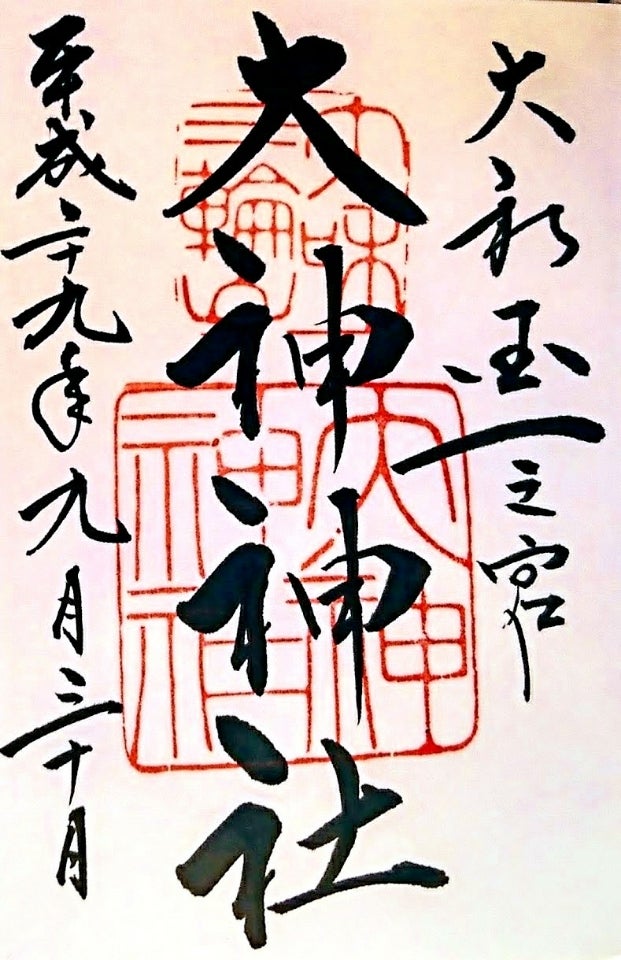 大和国一之宮
大神神社
平成二十九年九月三十日
大和
三輪山
大神
神社